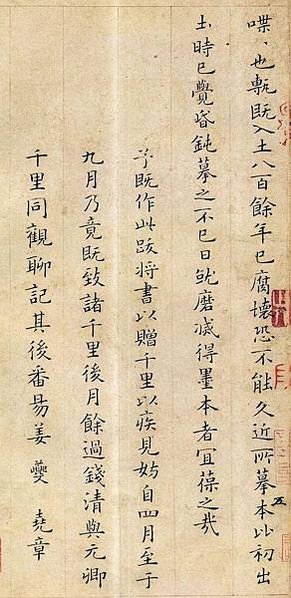 喋喋也甎既入土八百餘年已腐壞恐不能久近所摹本比初出
土時已覺昏鈍摹之不已日就磨滅得墨本者宜葆之哉
予既作此跋將書以贈千里以疾見妨自四月至于
九月乃竟既致諸千里後月餘過錢清與元卿
千里同觀聊記其後番昜姜夔堯章
五